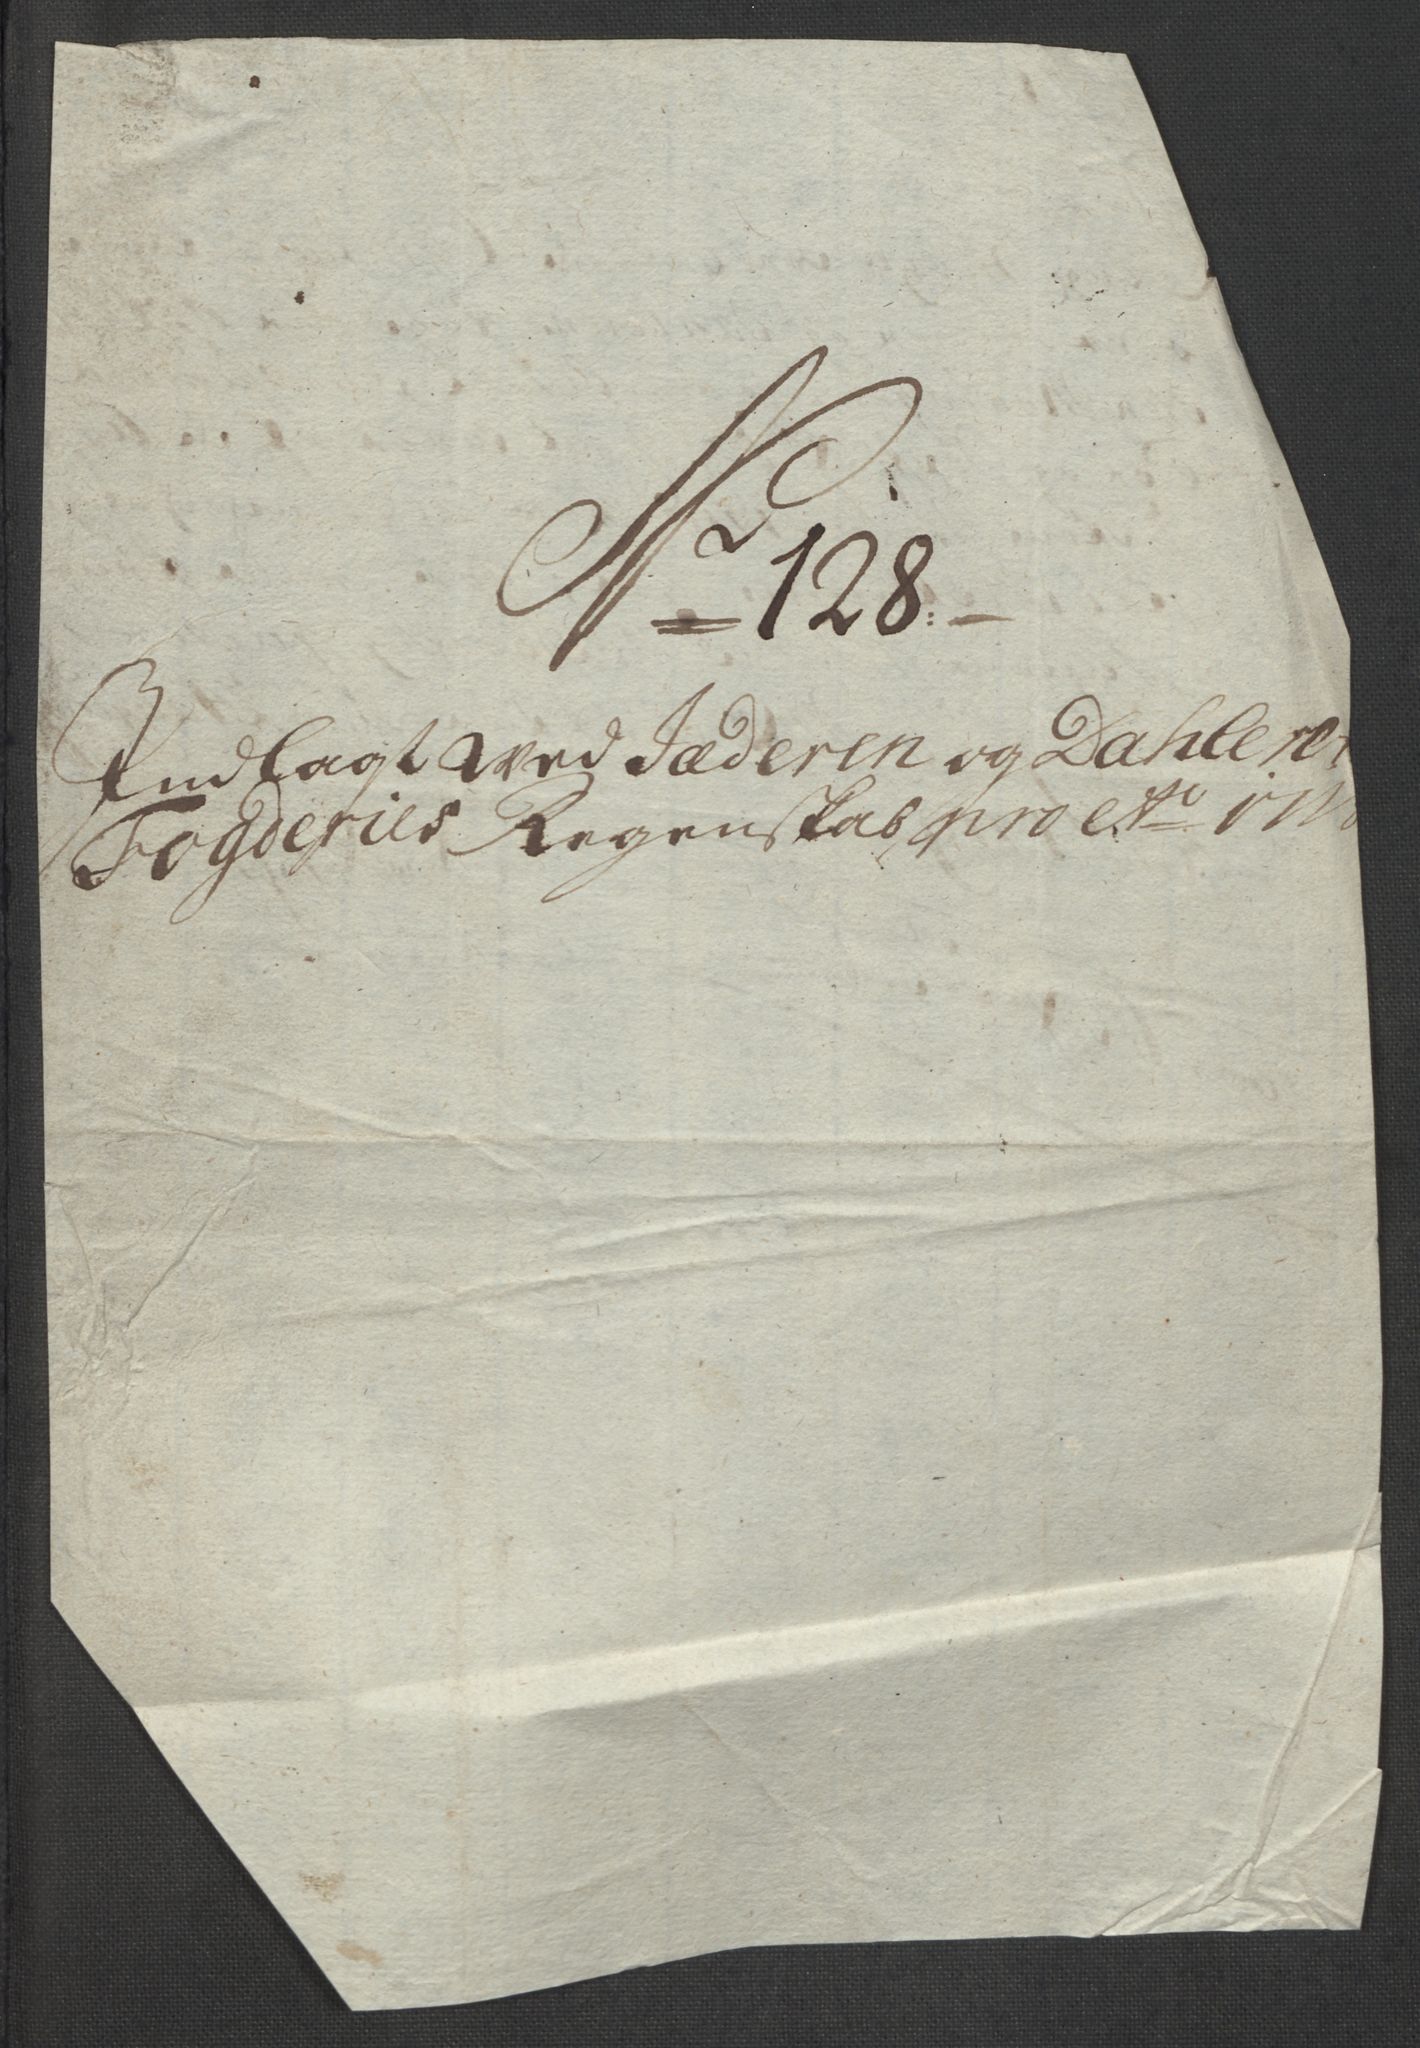 No 128.
Indlagt Wed Jæderen og Dahlerne
Fogderies Regenskab pro Ao